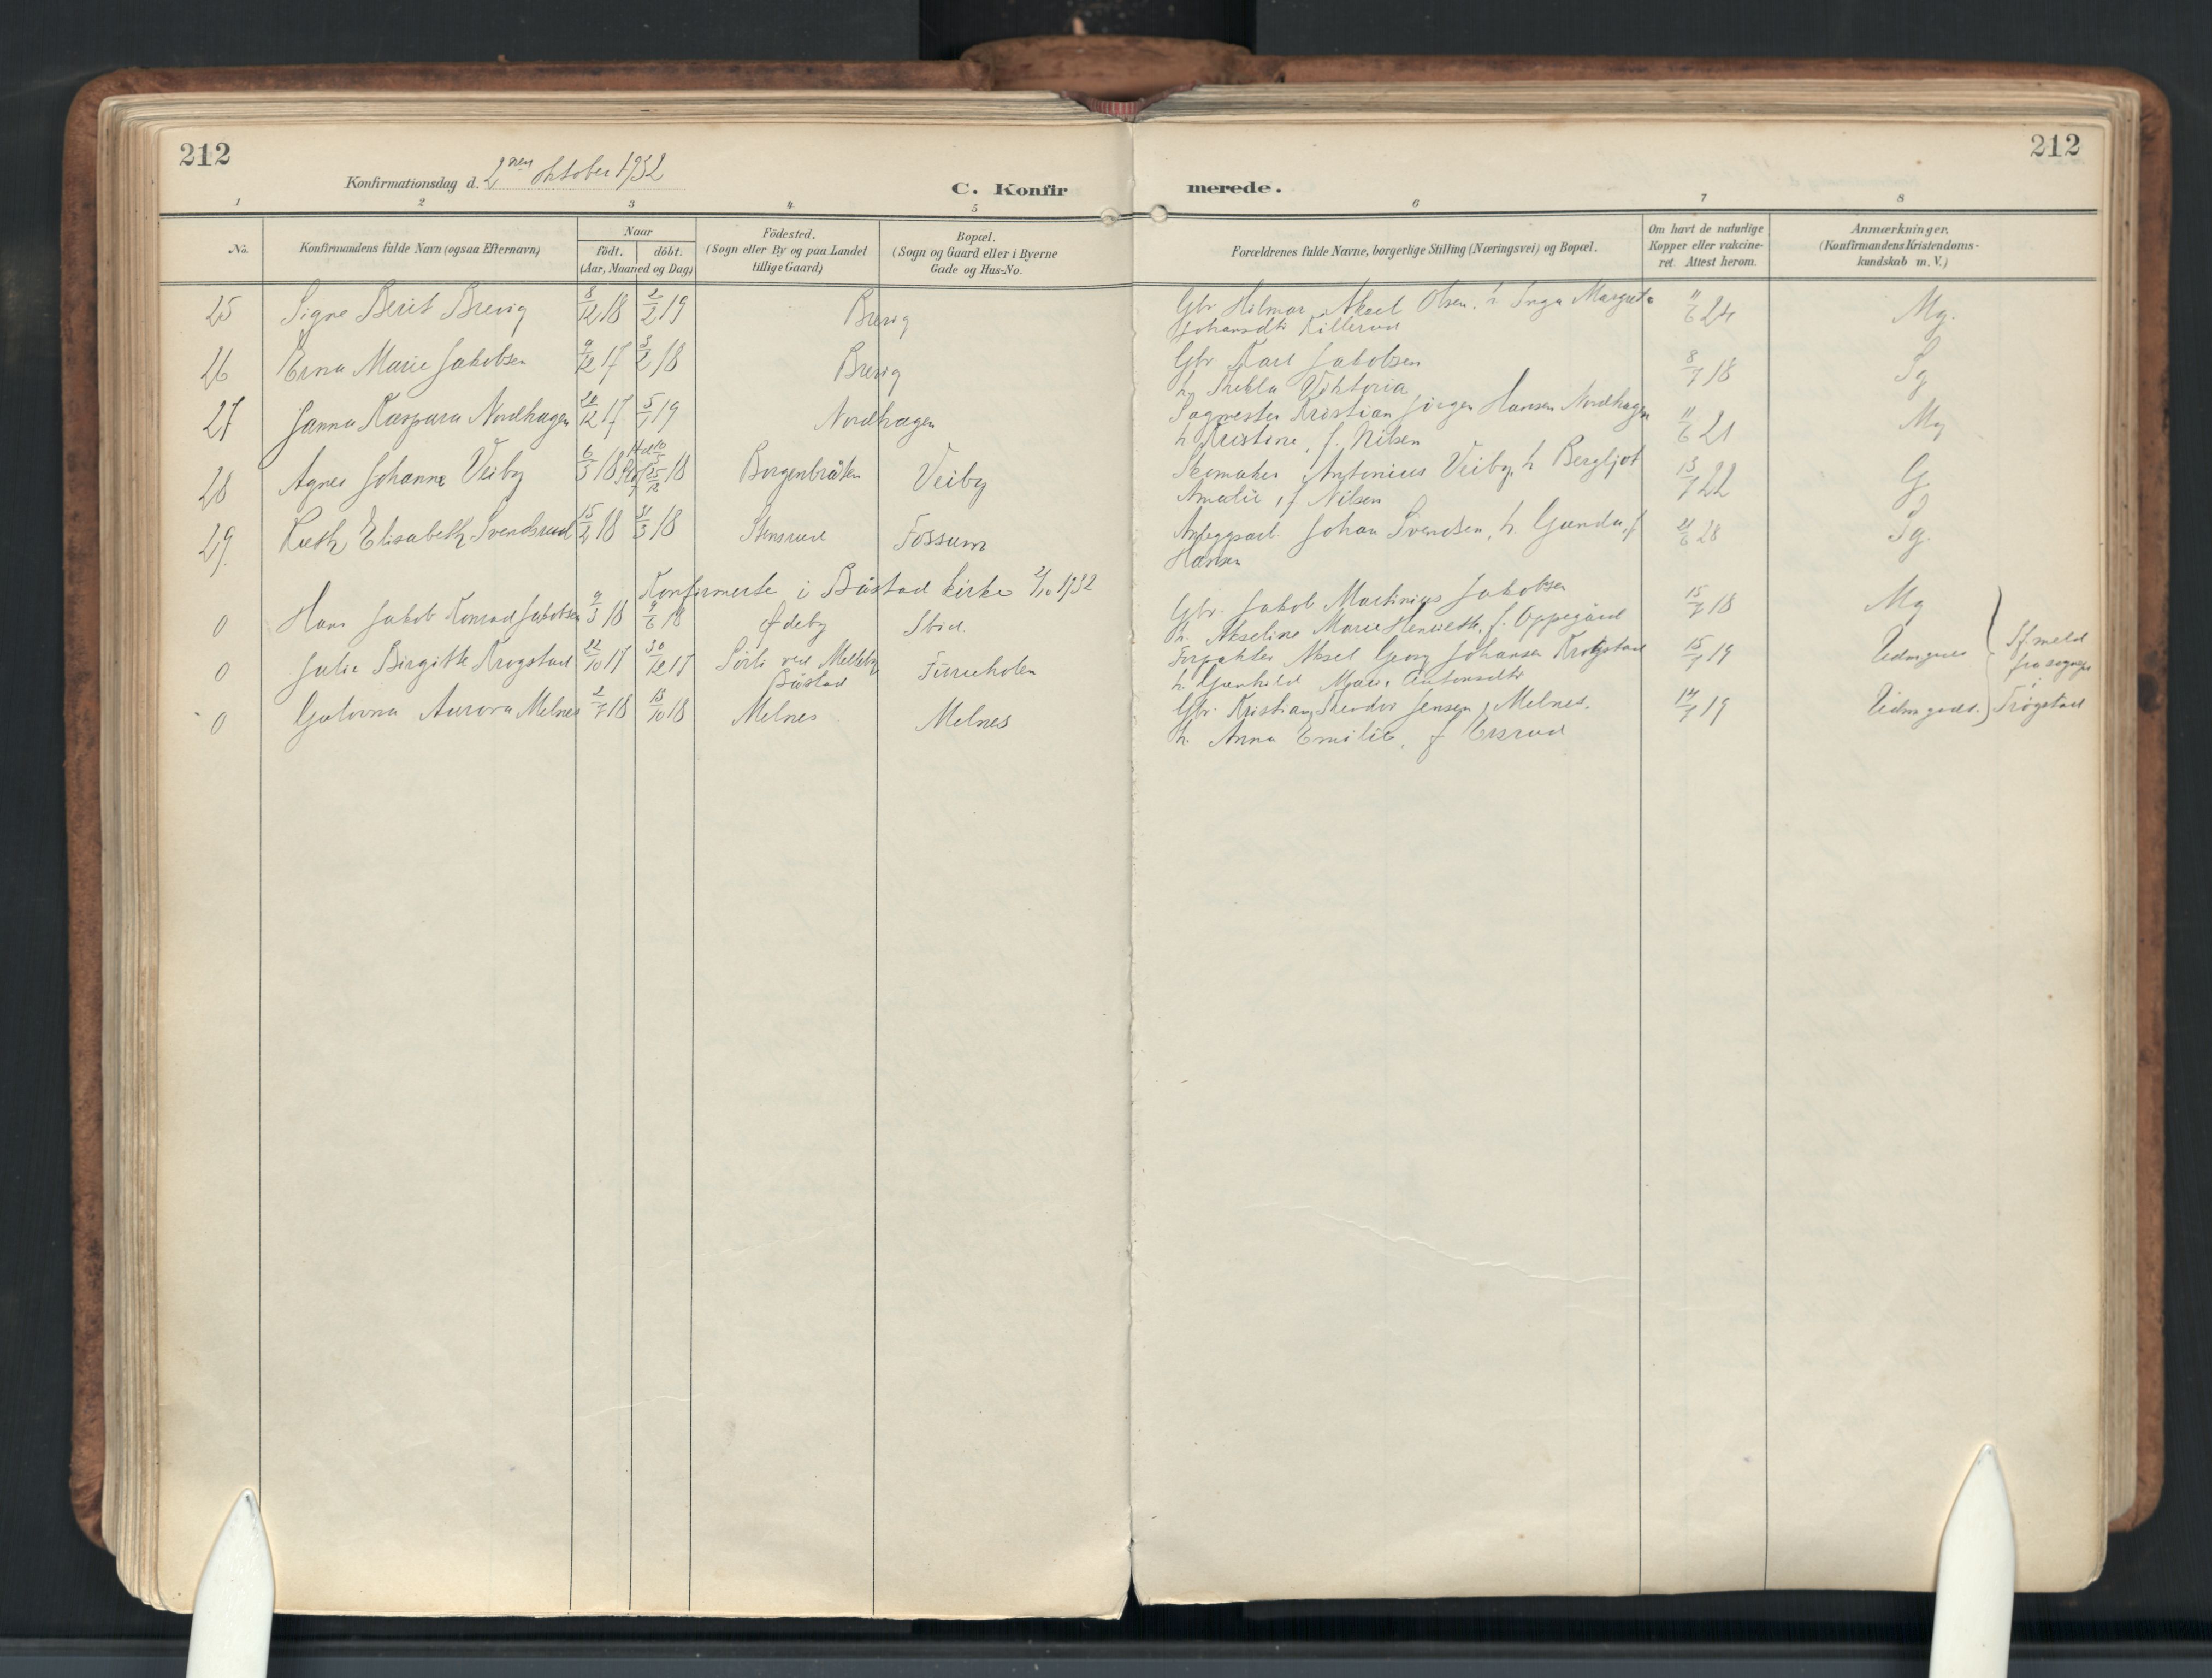 212
212
Konfirmationsdag d. 2nen oktober 1932
C. Konfir
merede.
1 2 3 4 5 6 7 8
No.
Konfirmandens fulde Navn (ogsaa Efternavn)
Naar
födt. döbt.
(Aar, Maaned og Dag)
Födested.
(Sogn eller By og paa Landet
tillige Gaard)
Bopæl.
(Sogn og Gaard eller i Byerne
Gade og Hus-No.
Forældrenes fulde Navne, borgerlige Stilling (Næringsvei) og Bopæl.
Om havt de naturlige
Kopper eller vakcine-
ret. Attest herom.
Anmærkninger.
(Konfirmandens Kristendoms-
kundskab m. V.)
25 Signe Berit Brevig 8/12 18 2/2 19 Brevig Gbr. Hilmar Aksel Olsen. h. Inga Margrete 11/6 24 Mg.
Johansdtr Killerud
26 Erna Marie Jakobsen 9/12 17 3/2 18 Brevig Gbr Karl Jakobsen 8/7 18 Sg
h. Viktoria
27 Janna Kaspara Nordhagen 20/12 17 5/1 19 Nordhagen Sagmester Kristian Jörgen Hansen Nordhagen 11/6 21 Mg
h Kristine, f. Nilsen
28 Agnes Johanne Veiby 6/3 18 18 Borgenbråten Veiby Skomaker Antonius Veiby, h Bergljot 13/7 22 G
Amalie, f Nilsen
29. Ruth Elisabeth Svendsrud 15/2 18 31/3 18 Stensrud Fossum Anleggsarb. Johan Svendsen, h. Gunda, f 21/6 28 Sg.
Hansen
Konfirmerte i Båstad kirke 2/10 1932
0 Hans Jakob Konrad Jakobsen 9/3 18 9/6 18 Ödeby Ibid. Gbr. Jakob Martinius Jakobsen 15/7 18 Mg
h. Akseline Marie Henriette, f. Oppegård
0 Julie Birgitte Krogstad 22/10 17 30/12 17 Sörli ved Melleby Furuholen Forpakter Aksel Georg Johansen Krogstad 15/7 19 Udmerget
Båstad
h. Gunhild Marie Antonsdtr
0 Galovna Aurora Melnes 2/7 18 13/10 18 Melnes Melnes Gbr. Kristian Teodor Jensen, Melnes. 14/7 19
h. Anna Emilie, f Ersrud
If. meld
fra sognepr
i
Trögstad